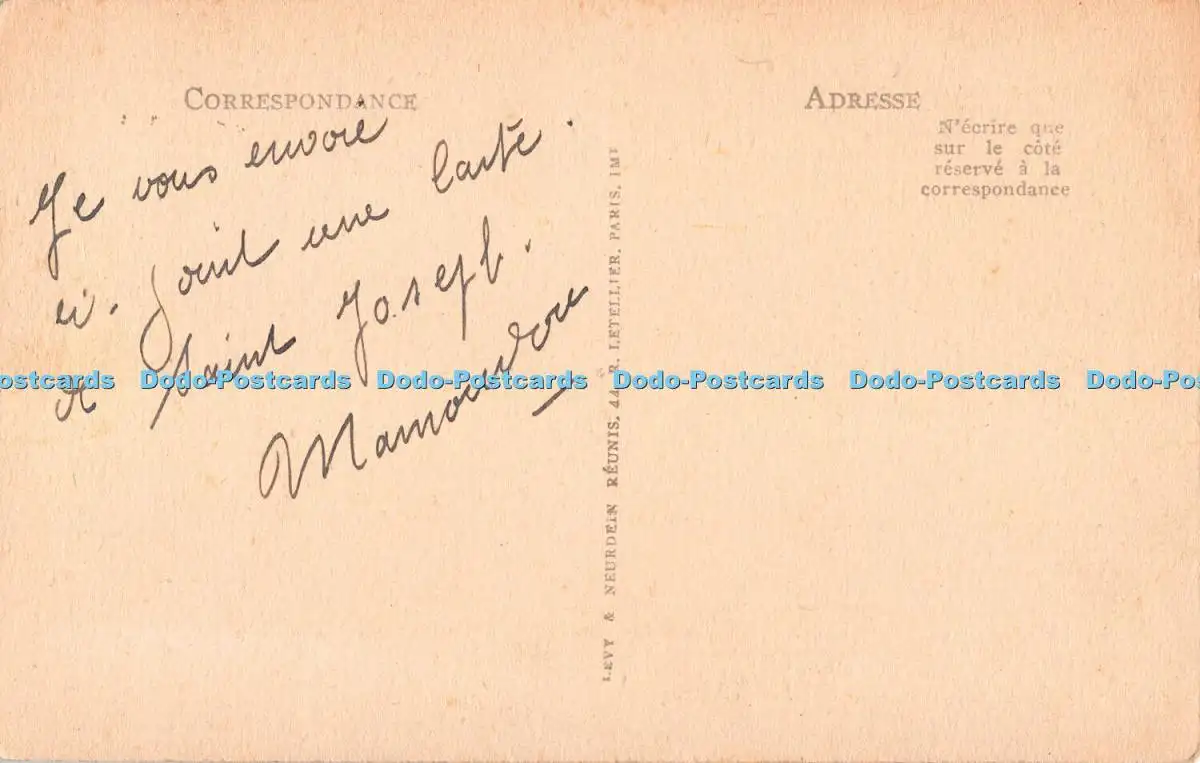 CORRESPONDANCE
Je vous envoie
ci-joint une carte.
de Saint Joseph.
ADRESSE
N'écrire que
sur le côté
réservé à la
correspondance
LEVY & NEURDEIN RÉUNIS, 44, R. LETELLIER, PARIS, IMP
Dodo-Postcards Dodo-Postcards Dodo-Postcards Dodo-Postcards